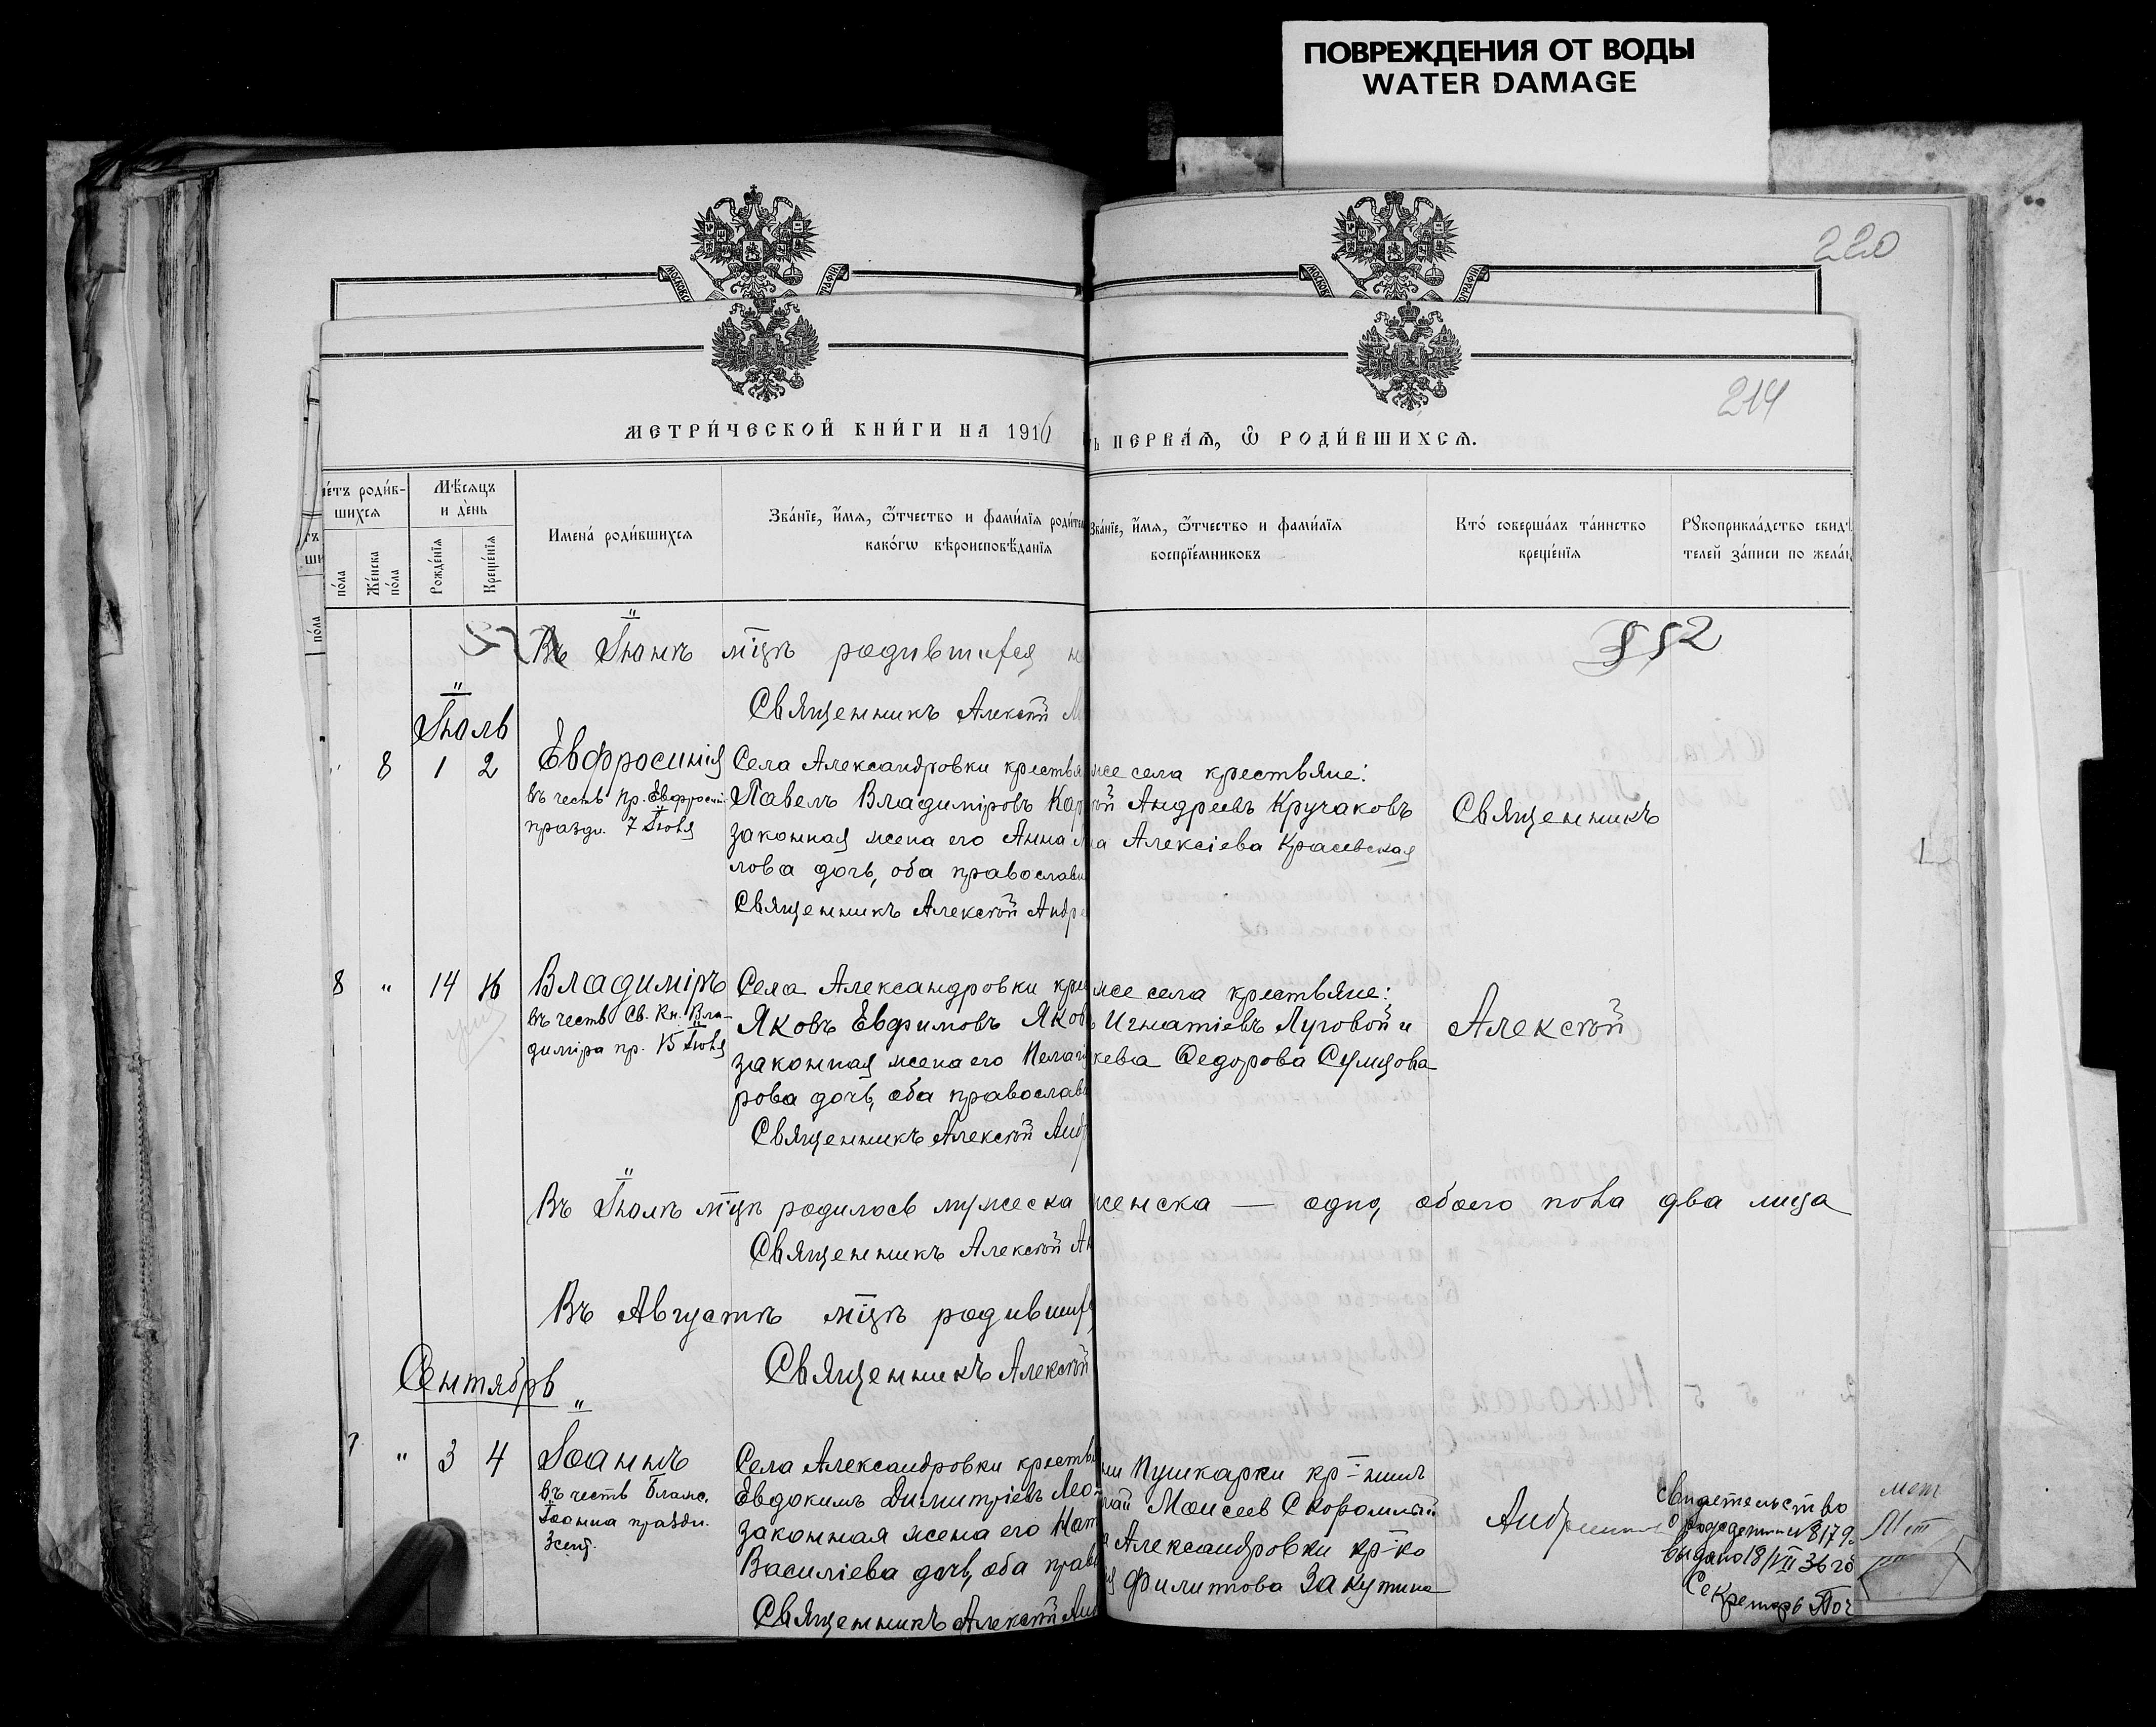 ПОВРЕЖДЕНИЯ ОТ ВОДЫ
WATER DAMAGE
220
214
МЕТРИ́ЧЕСКОЙ КНИ́ГИ НА 1916
ПЕРВАѦ, Ѡ РОДИ́ВШИХСѦ.
роди́в-
шихсѧ
по́ла
Же́нска
по́ла
Мѣ́сѧцъ
и де́нь
Рожде́нїѧ
Креще́нїѧ
Имена́ роди́вшихсѧ
Зва́нїе, и́мѧ, ѻ́тчество и фами́лїѧ родите
како́гѡ вѣроисповѣ́данїѧ
Зва́нїе, и́мѧ, ѻ́тчество и фами́лїѧ
воспрїе́мниковъ
Кто́ соверша́лъ та́инство
креще́нїѧ
Рꙋкоприкла́дство свидѣ
телей за́писи по жела
Въ Іюнѣ мцѣ родившихся
Священникъ Алексѣй
Іюль
8 1 2
Евфросинія
въ честь пр. Евфросин.
праздн. 7 Іюля
Села Александровки крестья
Павелъ Владиміровъ Кар
законная жена его Анна
лова дочь, оба православ
Священникъ Алексѣй Андре
же села крестьяне:
Андреевъ Кручаковъ
Алексіева Красевская
Священникъ
8 " 14 16
Владиміръ
въ честь Св. Кн. Вла-
диміра пр. 15 Іюля
Села Александровки кре
Яковъ Евфимовъ Яков
законная жена его Пелаг
рова дочь, оба православ
Священникъ Алексѣй Андр
же села крестьяне:
Игнатіевъ Луговой и
Ѳедорова Сумцова
Алексѣй
Въ Іюлѣ мцѣ родилось мужеска
женска — одно, обоего пола два лица
Священникъ Алексѣй Ан
Въ Августѣ мцѣ родивших
Священникъ Алексѣй
Сентябрь
" 3 4
Іоаннъ
въ честь Блаж.
Іоанна праздн.
3 сент.
Села Александровки крестья
Евдокимъ Димитріевъ Лео
законная жена его Нат
Василіева дочь, оба прав
Священникъ Алексѣй Ан
Пушкарки кр-нинъ
Моисеев Скоромный
Александровки кр-ко
Филиппова Закутина
свидетельство
о рождении № 8179
выдано 18/VII 36 го
Секретарь